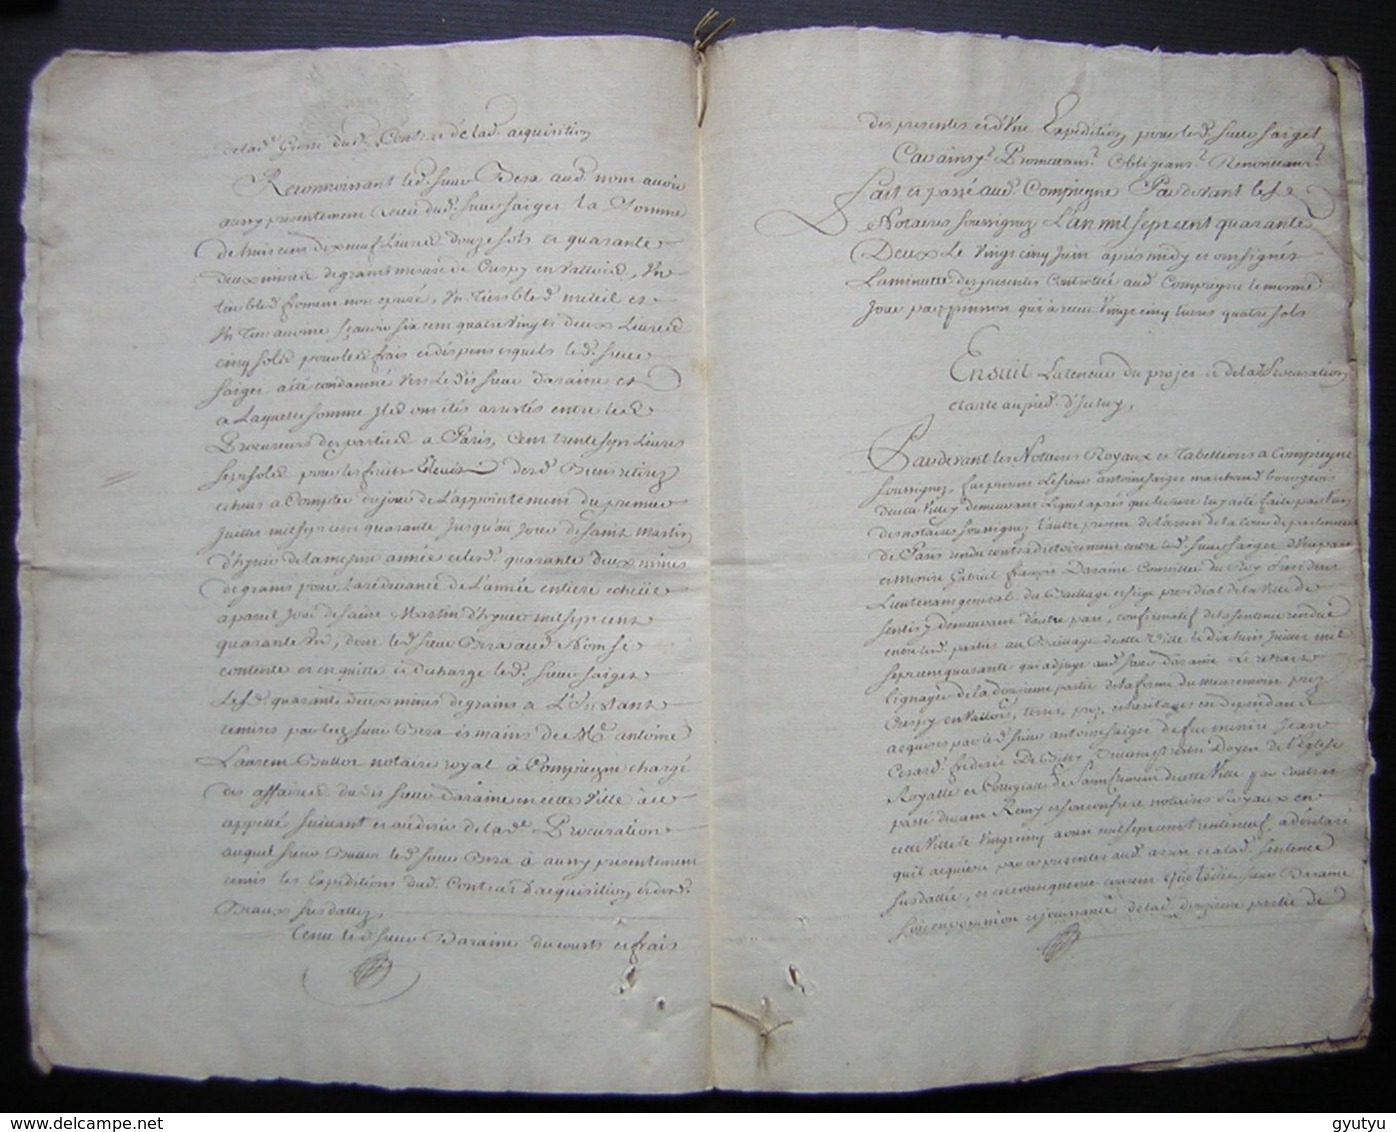 delad. Grosse dud. Contrat de lad. acquisition
Reconnoissant led. sieur Bera aud. nom avoir
aussy presentement receu dud. sieur saiget la somme
de huit cent dix neuf livres douze sols et quarante
deux mines de grains mesure de Crespy en Vallois, un
tier bled froment non epuré, un tier bled meteil et
un tier avoine sçavoir six cent quatre vingts deux livres
cinq sols pour les frais et depens esquels led. sieur
saiget a été condamné vers led. sieur Daraine et
a laquelle somme ils ont étés arrestés entre les
Procureurs des parties a Paris, cent trente sept livres
sept sols pour les fruits desd. biens retirez
echeus a compter du jour de l'appointement du premier
juillet mil sept cent quarante jusqu'au jour de saint Martin
d'hyver de la mesme année et lesd. quarante deux mines
de grains pour la redevance de l'année entiere echeüe
a pareil jour de saint Martin d'hyver mil sept cent
quarante un, dont led. sieur Bera aud. nom se
contente et en quitte et decharge led. sieur saiget
lesd. quarante deux mines de grains a l'instant
remises par led. sieur Bera és mains de Me. antoine
Laurent notaire royal à Compiegne chargé
des affaires dud. sieur Daraine en cette ville à ce
appellé suivant et au desir de lad. Procuration
auquel sieur led. sieur Bera à aussy presentement
remis les Expeditions dud. Contrat d'acquisition et desd.
Beaux susdattez,
tenu led. sieur Daraine du couts et frais
des presentes et d'une Expedition pour led. sieur saiget
Car ainsy. Promettans. obligeans. Renonceans.
Fait et passé aud. Compiegne Pardevant lesd.
Notaires soussignez L'an mil sept cent quarante
Deux Le vingt cinq juin apres midy et ont signés
la minutte des presentes Controllée aud. Compiegne le mesme
jour par pinson qui a receu vingt cinq livres quatre sols
Ensuit la teneur du projet et de lad. Procuration
etante au pied d'iceluy,
Pardevant les Notaires Royaux et Tabellions a Compiegne
soussignez, fut present Le sieur antoine saiget marchand bourgeois
de cette ville y demeurant Lequel aprés que lecture luy a été faite par l'un
des notaires soussignez l'autre present de l'arrest de la Cour de parlement
de Paris rendu contradictoirement entre led. sieur saiget d'une part
et Messire Gabriel françois Daraine Conseiller du Roy President
Lieutenant general du Bailliage et siege presidial de la ville de
senlis y demeurant d'autre part, confirmatif de la sentence rendüe
entre les. parties au Bailliage de cette ville le dix huit juillet mil
sept cent quarante qui adjuge aud. sieur daraine le retrait
lignager de la douzieme partie de la ferme du meuremont prez
Crespy en Vallois, terres, prez, et heritages en dependans
acquises par led. sieur antoine saiget de feu messire Jean
Cesard frederic De Billy Doyen de l'Eglise
Royalle et Collegialle de de cette ville par contrat
passé devant Remy et son confrere notaires Royaux en
cette ville le vingt cinq aoust mil sept cent trente neuf, a declaré
qu'il acquiesce par ces presentes aud. arrest et a lad. sentence
susdattée, et en consequence consent que led. sieur Daraine
soit en possession et jouissance de lad. douzieme partie de